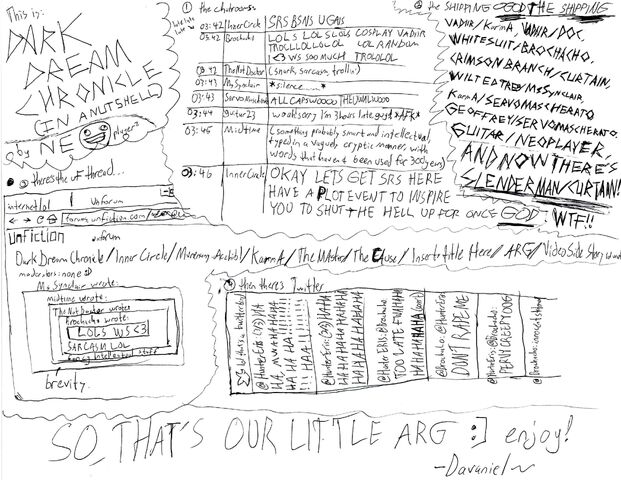 This is:
DARK
DREAM
CHRONICLE
(IN A NUTSHELL)
by NEO player
① the chatrooms:
late late late
03:42 InnerCircle SRS BSNS UGAIS
03:42 Brochacho LOLS LOLSLOLS COSPLAY VADIIR
TROLLLOLOLOL LOL RANDOM
I <3 WS SOO MUCH TROLOLOL
03:42 TheNotDoctor (snark, sarcasm, trollin')
03:43 MsSynclair *silence......*
03:43 ServoMascherato ALLCAPSWOOOO
03:44 guitar23 woah sorry I'm 3 hours late guys *AFK*
03:45 Midtime (something probably smart and intellectual,
typed in a vaguely cryptic manner with
words that haven't been used for 300 years)
03:46 InnerCircle OKAY LETS GET SRS HERE
HAVE A PLOT EVENT TO INSPIRE
YOU TO SHUT THE HELL UP FOR ONCE GOD
② the SHIPPING OGOD THE SHIPPING
VADIIR/KarinA, VADIIR/DOC,
WHITESUIT/BROCHACHO,
CRIMSONBRANCH/CURTAIN,
WILTEDTREE/MSSYNCLAIR,
KarinA/SERVOMASCHERATO
GEOFFREY/SERVOMASCHERATO.
GUITAR/NEOPLAYER,
AND NOW THERE'S
SLENDERMAN/CURTAIN!
WTF!!
③ theres the uF thread...
internetlol
Unforum
forum.unfiction.com/
Unfiction unforum
Dark Dream Chronicle/Inner Circle/
KarinA/The
The Cause/Insert Title Here/ARG/Video Side Story
moderators: none :)
Ms Synclair wrote:
midtime wrote:
The Not Doctor wrote:
Brochacho wrote:
LOLS WS <3
SARCASM LOL
Fancy Intellectual stuff
brevity.
④ then there's Twitter
@HunterEris
HA HAHAHAHA
HA HA HA!!!!!!!
@HunterEris
HAHAHAHAHAHA
HAHAHAHAHAHA
@HunterEris: @Brochacho:
TOO LATE
HAHAHAHAHA
@Brochacho: @HunterEris:
DON'T RAPE ME
@HunterEris: @Brochacho:
PERVY CREEPTONS
@Brochacho:
SO, THAT'S OUR LITTLE ARG :] enjoy!
~Davaniel~